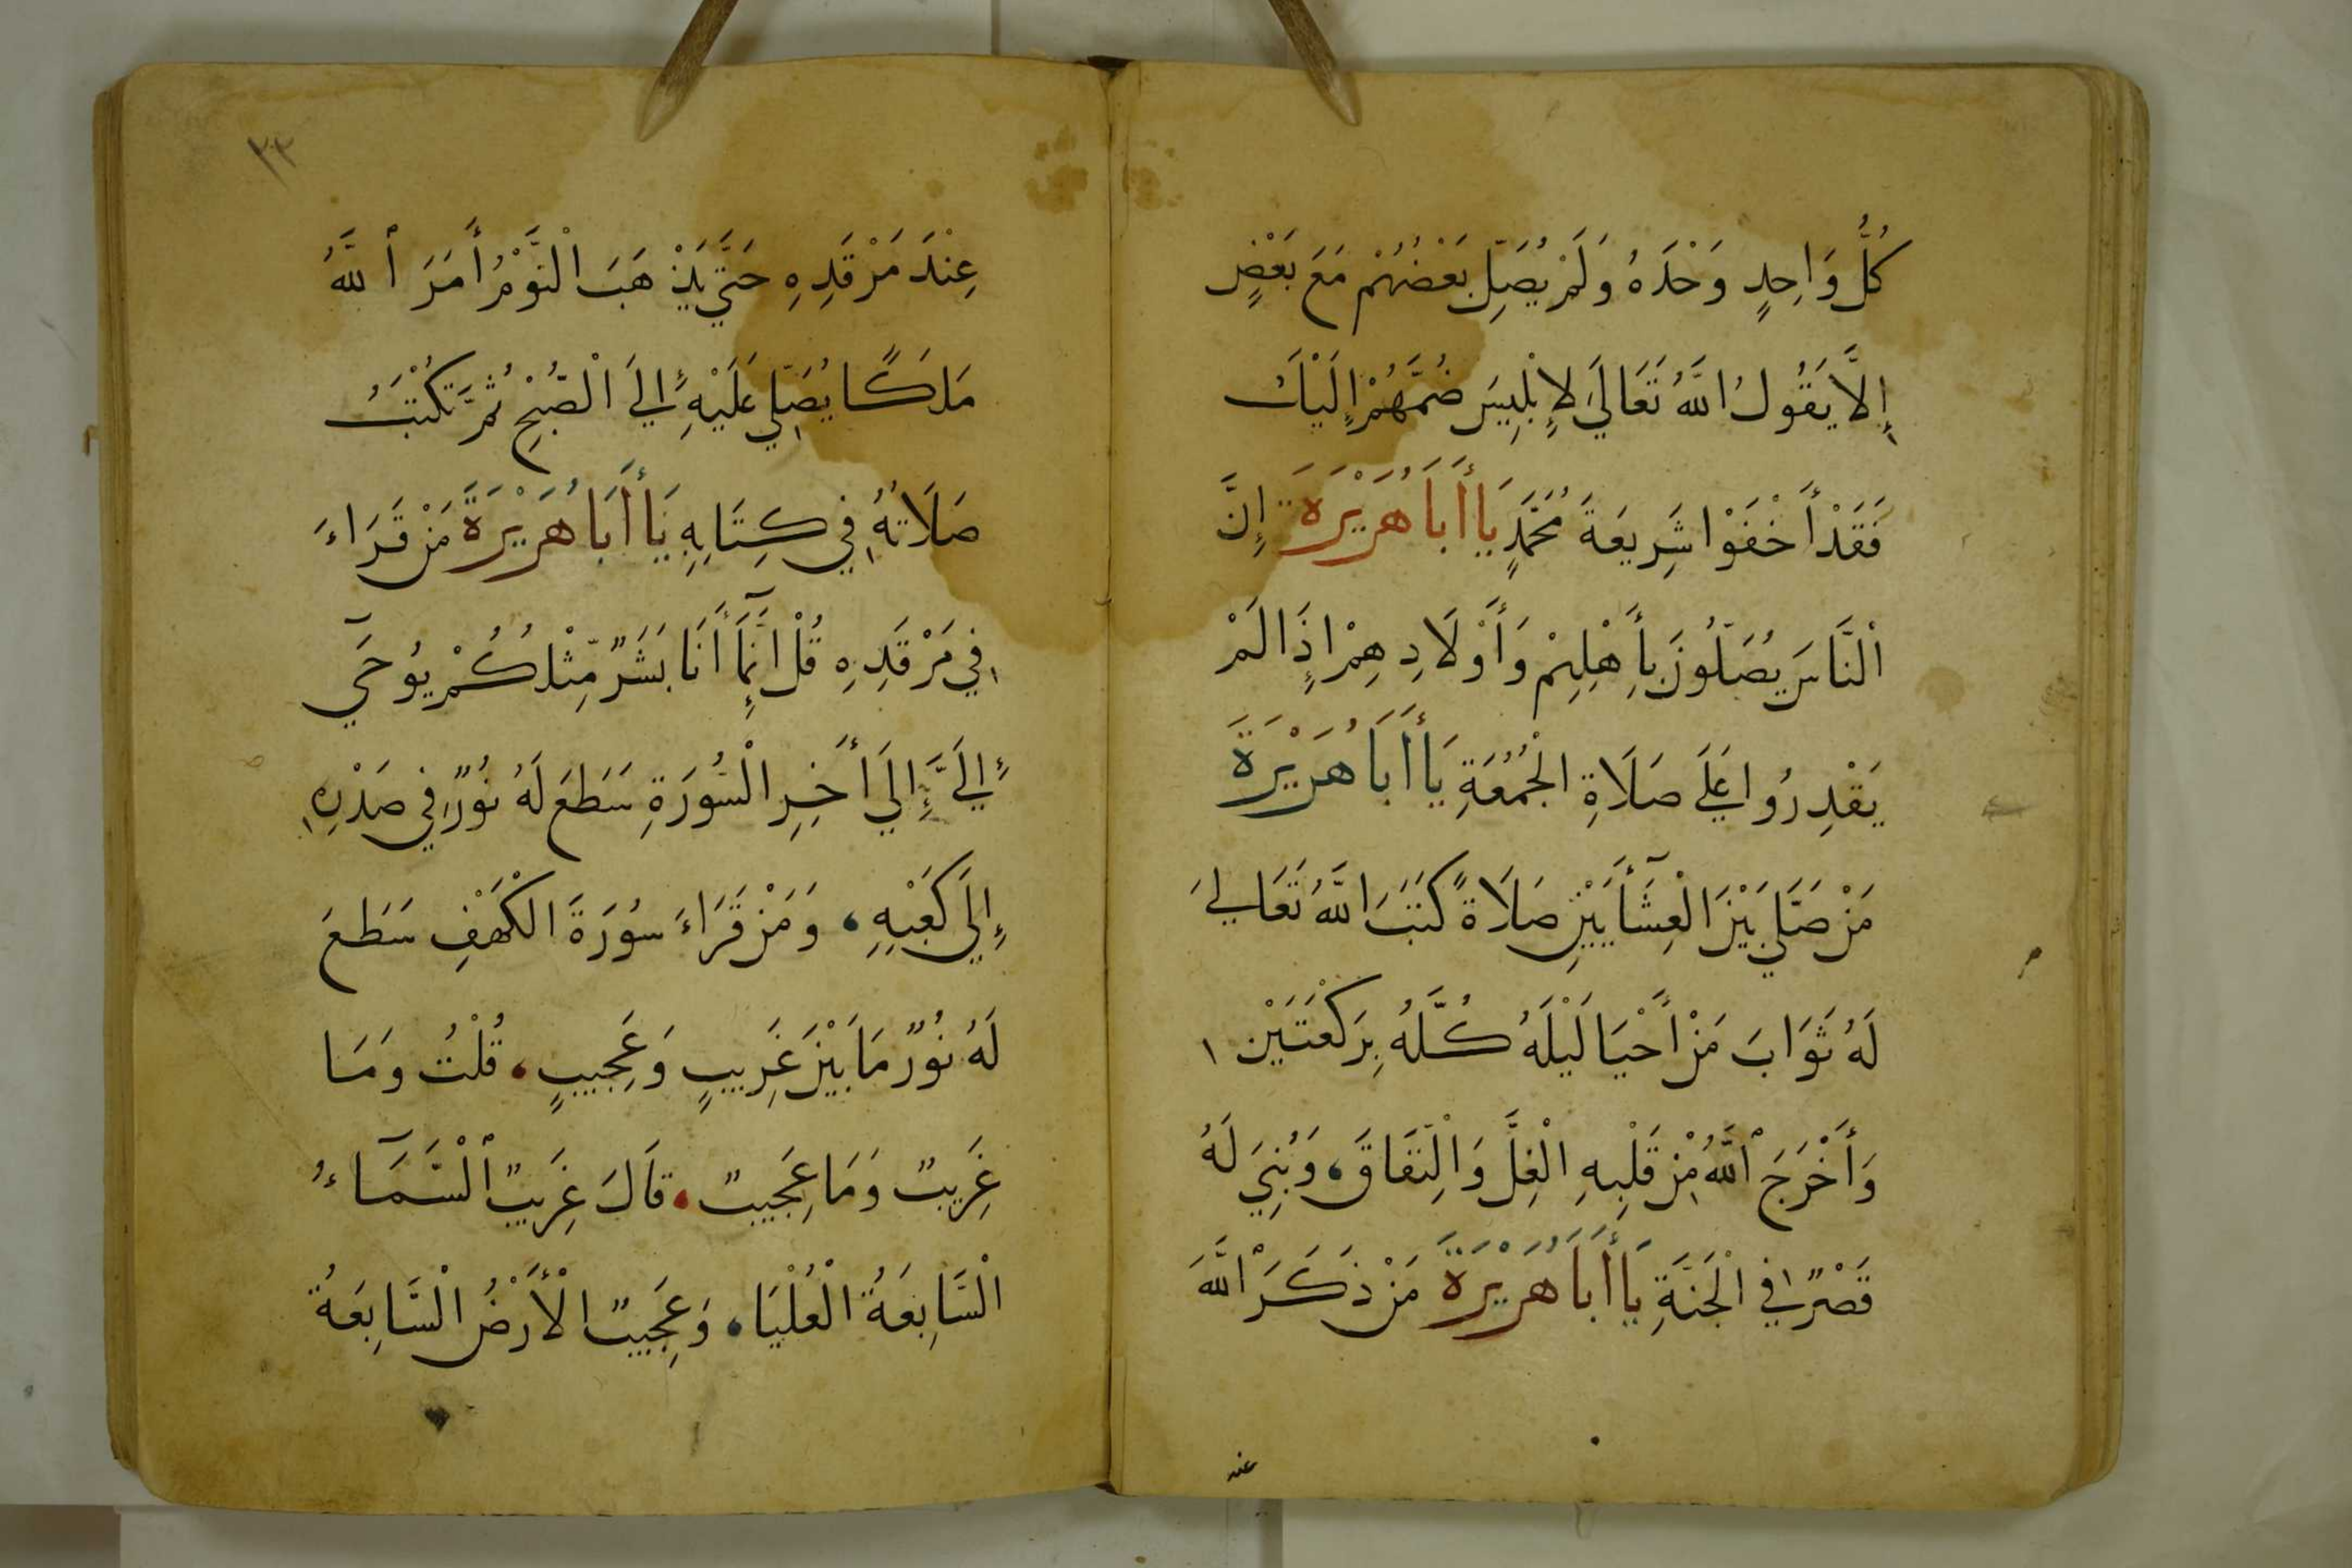 كُلُّ وَاحِدٍ وَحْدَهُ وَلَمْ يُصَلِّ بَعْضُهُمْ مَعَ بَعْضٍ
إِلَّا يَقُولُ اللَّهُ تَعَالَي لِإِبْلِيسَ ضُمَّهُمْ إِلَيْكَ
فَقَدْ أَخْفَوْا شَرِيعَةَ مُحَمَّدٍ يَا أَبَا هُرَيْرَةَ إِنَّ
الْنَّاسَ يُصَلُّونَ بِأَهْلِهِمْ وَأَوْلَادِهِمْ إِذَا لَمْ
يَقْدِرُوا عَلَي صَلَاةِ الْجُمُعَةِ يَا أَبَا هُرَيْرَةَ
مَنْ صَلَّي بَيْنَ الْعِشَآأَيَيْنِ صَلَاةً كَتَبَ اللَّهُ تَعَالَي
لَهُ ثَوَابَ مَنْ أَحْيَا لَيْلَهُ كُلَّهُ بِرَكْعَتَيْنِ
وَأَخْرَجَ ٱللَّهُ مِنْ قَلْبِهِ الْغِلَّ وَالْنِّفَاقَ، وَبُنِيَ لَهُ
قَصْرٌ فِي الْجَنَّةِ يَا أَبَا هُرَيْرَةَ مَنْ ذَكَرَ اللَّهَ
عند
٢٣
عِنْدَ مَرْقَدِهِ حَتَّي يَذْهَبَ الْنَّوْمُ أَمَرَ ٱللَّهُ
مَلَكًا يُصَلِّي عَلَيْهِ إِلَي الْصُّبْحِ ثُمَّ تُكْتَبُ
صَلَاتُهُ فِي كِتَابِهِ يَا أَبَا هُرَيْرَةَ مَنْ قَرَاءَ
فِي مَرْقَدِهِ قُلْ إِنَّمَآ أَنَا بَشَرٌ مِّثْلُكُمْ يُوحَي
إِلَيَّ إِلَي أَخِرِ الْسُّورَةِ سَطَعَ لَهُ نُورٌ فِي صَدْرِهِ
إِلَي كَعْبِهِ، وَمَنْ قَرَاءَ سُورَةَ الْكَهْفِ سَطَعَ
لَهُ نُورٌ مَا بَيْنَ غَرِيبٍ وَعَجِيبٍ، قُلْتُ وَمَا
غَرِيبٌ وَمَا عَجِيبٌ، قَالَ غَرِيبٌ ٱلْسَّمَآءُ
الْسَّابِعَةُ الْعُلْيَا، وَعَجِيبٌ الْأَرْضُ الْسَّابِعَةُ